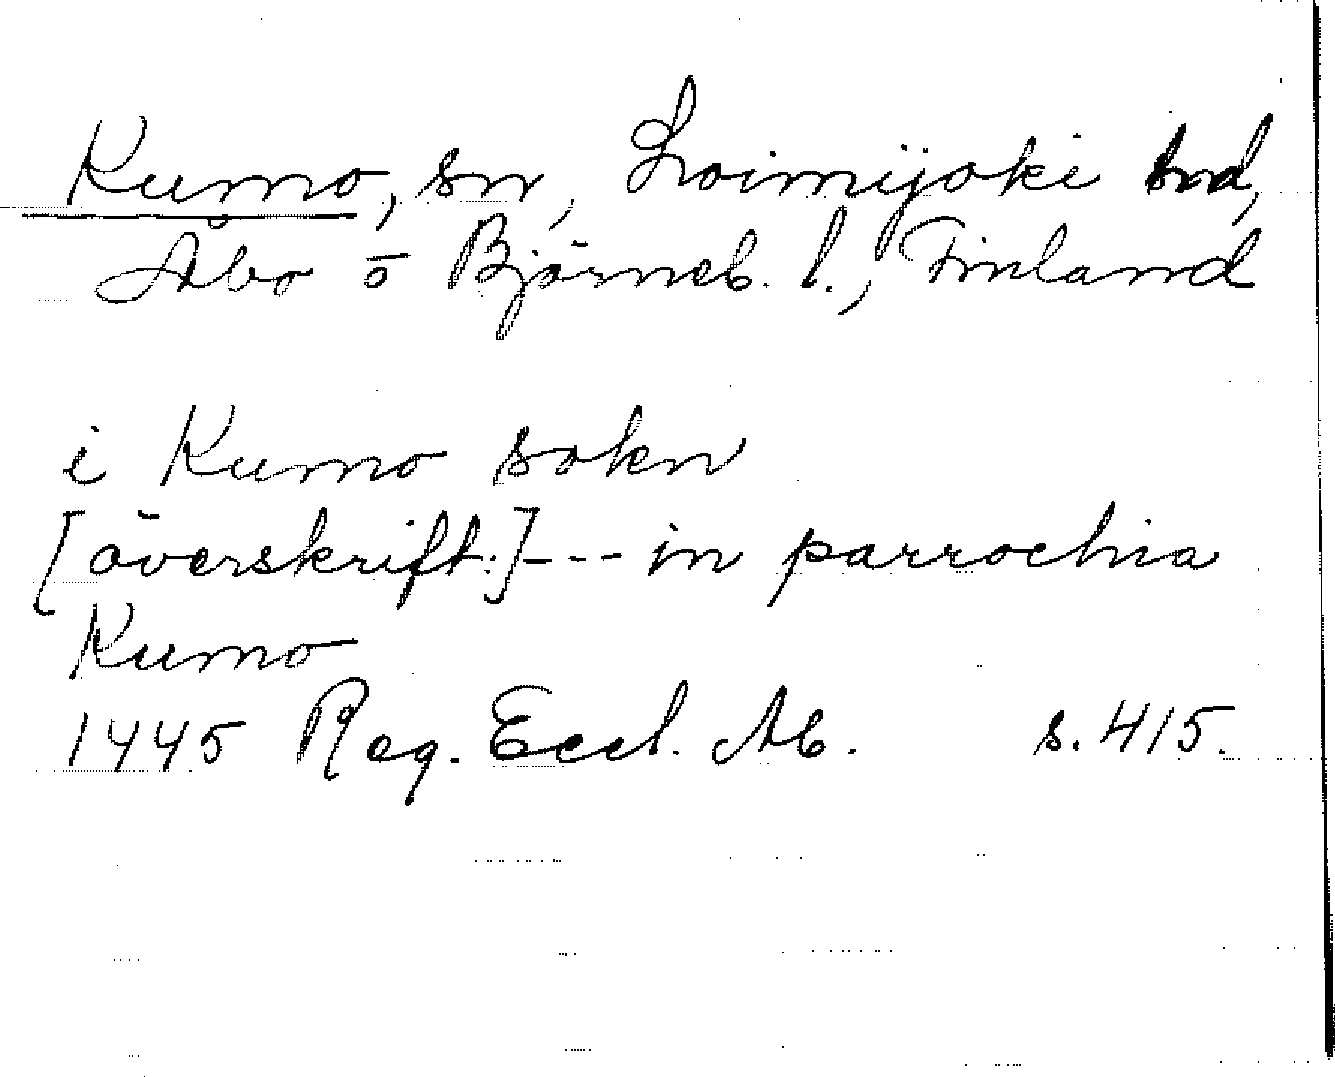 Kumo, sn, Loimijoki hd,
Åbo o Björneb. l., Finland
i Kumo sokn
[överskrift:]--- in parrochia
Kumo
1445 Reg. Eccl. Ab. s. 415.